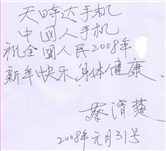 天时达手机
中国人手机
祝全国人民2008年
新年快乐,身体健康.
蔡
2008年元月31号